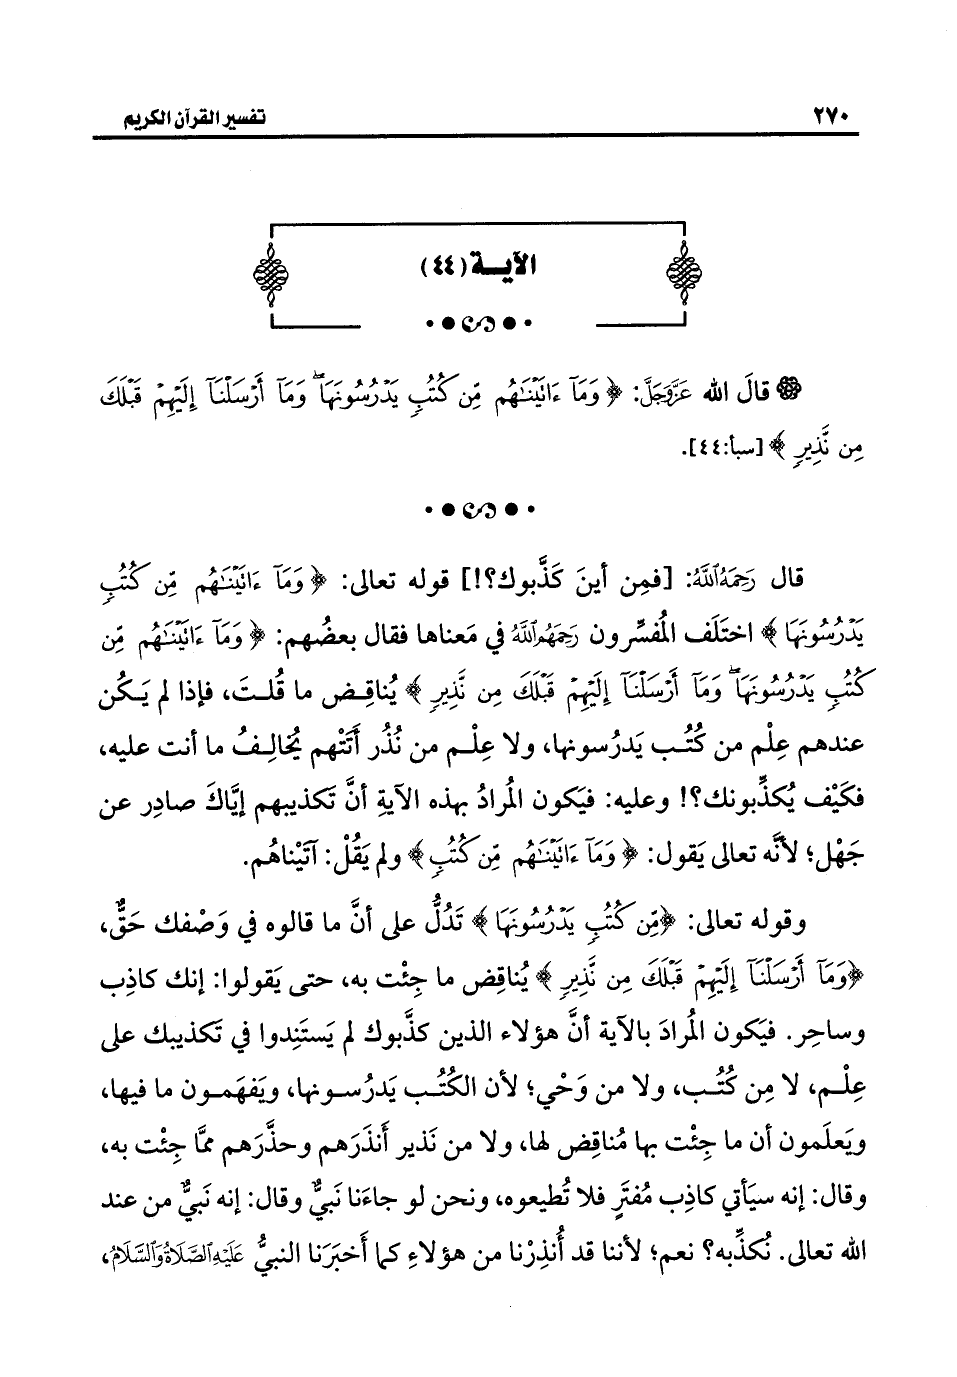 ٢٧٠
تفسير القرآن الكريم
الآيـــة (٤٤)
قالَ الله عَزَّوَجَلَّ: ﴿وَمَآ ءَاتَيْنَـٰهُم مِّن كُتُبٍ يَدْرُسُونَهَا ۖ وَمَآ أَرْسَلْنَآ إِلَيْهِمْ قَبْلَكَ
مِن نَّذِيرٍ﴾ [سبأ:٤٤].
قال رَحِمَهُ اللَّهُ: [فمِن أينَ كَذَّبوك؟!] قوله تعالى: ﴿وَمَآ ءَاتَيْنَـٰهُم مِّن كُتُبٍ
يَدْرُسُونَهَا﴾ اختَلَف المُفسِّرون رَحِمَهُمُ اللَّهُ في مَعناها فقال بعضُهم: ﴿وَمَآ ءَاتَيْنَـٰهُم مِّن
كُتُبٍ يَدْرُسُونَهَا ۖ وَمَآ أَرْسَلْنَآ إِلَيْهِمْ قَبْلَكَ مِن نَّذِيرٍ﴾ يُناقِـض ما قُلـتَ، فإذا لم يَكُن
عندهم عِلْم من كُتُـب يَدرُسونها، ولا عِلْـم من نُذُر أَتَتْهم يُخالِفُ ما أنت عليه،
فكَيْف يُكذِّبونك؟! وعليه: فيَكون المُرادُ بهذه الآيةِ أنَّ تَكذيبهم إيَّاكَ صادِر عن
جَهْل؛ لأنَّه تعالى يَقول: ﴿وَمَآ ءَاتَيْنَـٰهُم مِّن كُتُبٍ﴾ ولم يَقُلْ: آتَيْناهُم.
وقوله تعالى: ﴿مِّن كُتُبٍ يَدْرُسُونَهَا﴾ تَدُلُّ على أنَّ ما قالوه في وَصْفك حَقٌّ،
﴿وَمَآ أَرْسَلْنَآ إِلَيْهِمْ قَبْلَكَ مِن نَّذِيرٍ﴾ يُناقِض ما جِئْت به، حتى يَقولوا: إنك كاذِب
وساحِر. فيَكون المُرادَ بالآية أنَّ هؤلاء الذين كذَّبوك لم يَستَنِدوا في تَكذيبك على
عِلْم، لا مِن كُتُـب، ولا من وَحْي؛ لأن الكُتُـب يَدرُسـونها، ويَفهَمـون ما فيها،
ويَعلَمون أن ما جِئْت بها مُناقِض لها، ولا من نَذير أَنذَرَهم وحذَّرَهم ممَّا جِئْت به،
وقال: إنه سيَأتي كاذِب مُفتَرٍ فلا تُطيعوه، ونحن لو جاءَنا نَبيٌّ وقال: إنه نَبيٌّ من عند
الله تعالى. نُكذِّبه؟ نعم؛ لأننا قد أُنذِرْنا من هؤلاءِ كما أَخبَرَنا النبيُّ عَلَيْهِ الصَّلَاةُ وَالسَّلَامُ،